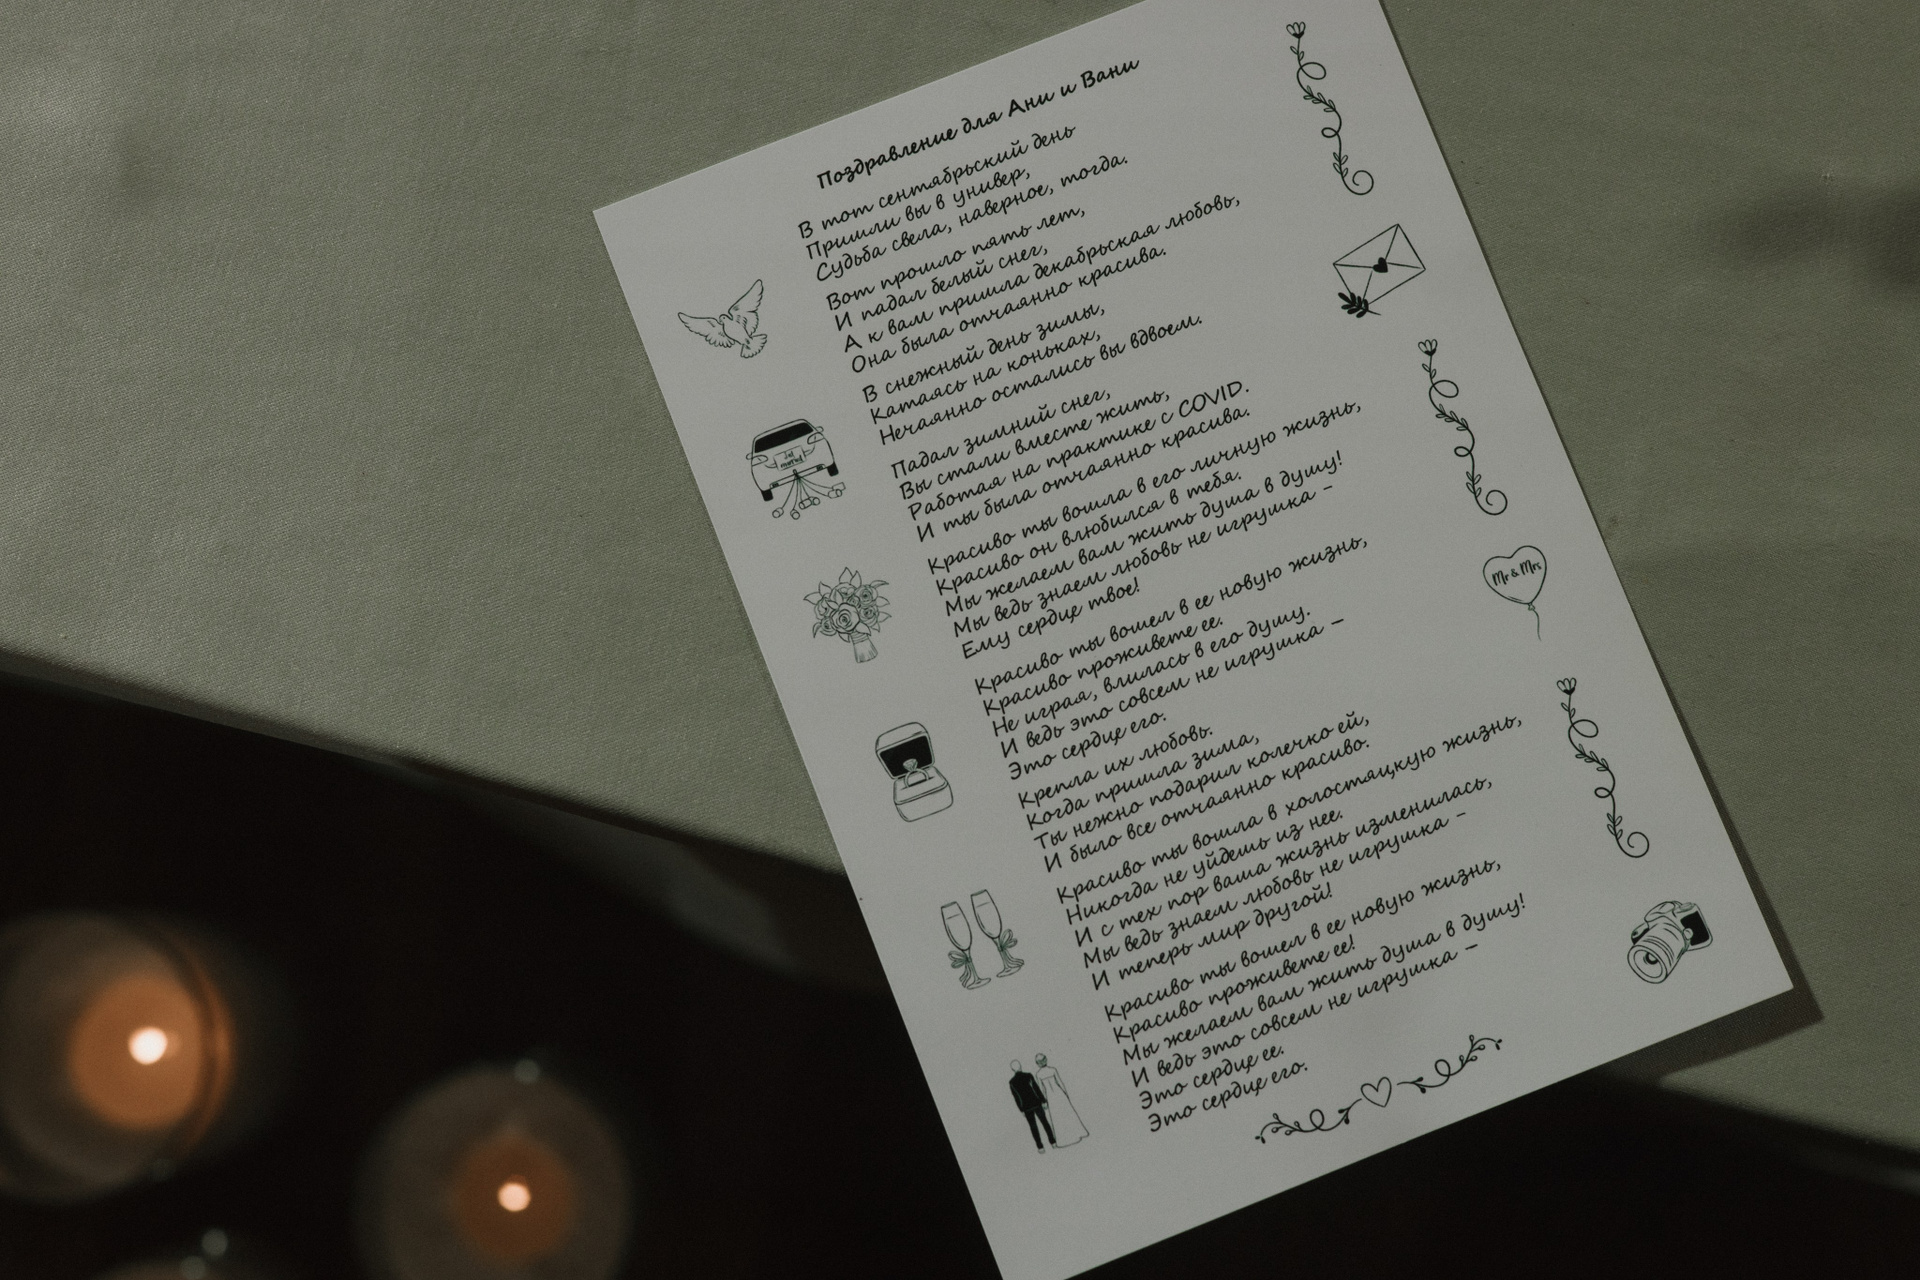 Поздравление для Ани и Вани
В тот сентябрьский день
Пришли вы в универ,
Судьба свела, наверное, тогда.
Вот прошло пять лет,
И падал белый снег,
А к вам пришла декабрьская любовь,
Она была отчаянно красива.
В снежный день зимы,
Катаясь на коньках,
Нечаянно остались вы вдвоем.
Падал зимний снег,
Вы стали вместе жить,
Работая на практике с COVID.
И ты была отчаянно красива.
Красиво ты вошла в его личную жизнь,
Красиво он влюбился в тебя.
Мы желаем вам жить душа в душу!
Мы ведь знаем любовь не игрушка –
Ему сердце твое!
Красиво ты вошел в ее новую жизнь,
Красиво проживете ее.
Не играя, влилась в его душу.
И ведь это совсем не игрушка –
Это сердце его.
Крепла их любовь.
Когда пришла зима,
Ты нежно подарил колечко ей,
И было все отчаянно красиво.
Красиво ты вошла в холостяцкую жизнь,
Никогда не уйдешь из нее.
И с тех пор ваша жизнь изменилась,
Мы ведь знаем любовь не игрушка –
И теперь мир другой!
Красиво ты вошел в ее новую жизнь,
Красиво проживете ее!
Мы желаем вам жить душа в душу!
И ведь это совсем не игрушка –
Это сердце ее.
Это сердце его.
Just
married
Mr & Mrs